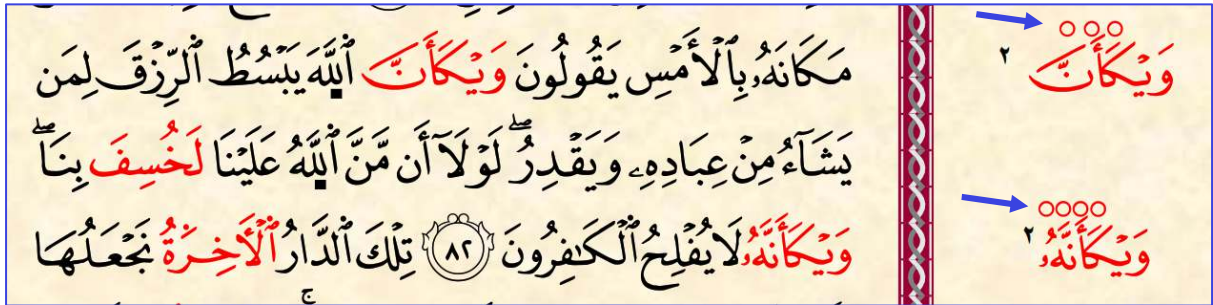 مَكَانَهُۥ بِٱلْأَمْسِ يَقُولُونَ وَيْكَأَنَّ ٱللَّهَ يَبْسُطُ ٱلرِّزْقَ لِمَن
يَشَآءُ مِنْ عِبَادِهِۦ وَيَقْدِرُ ۖ لَوْلَآ أَن مَّنَّ ٱللَّهُ عَلَيْنَا لَخُسِفَ بِنَا ۖ
وَيْكَأَنَّهُۥ لَا يُفْلِحُ ٱلْكَٰفِرُونَ ٨٢ تِلْكَ ٱلدَّارُ ٱلْأَخِرَةُ نَجْعَلُهَا
وَيْكَأَنَّ ٢
وَيْكَأَنَّهُۥ ٢